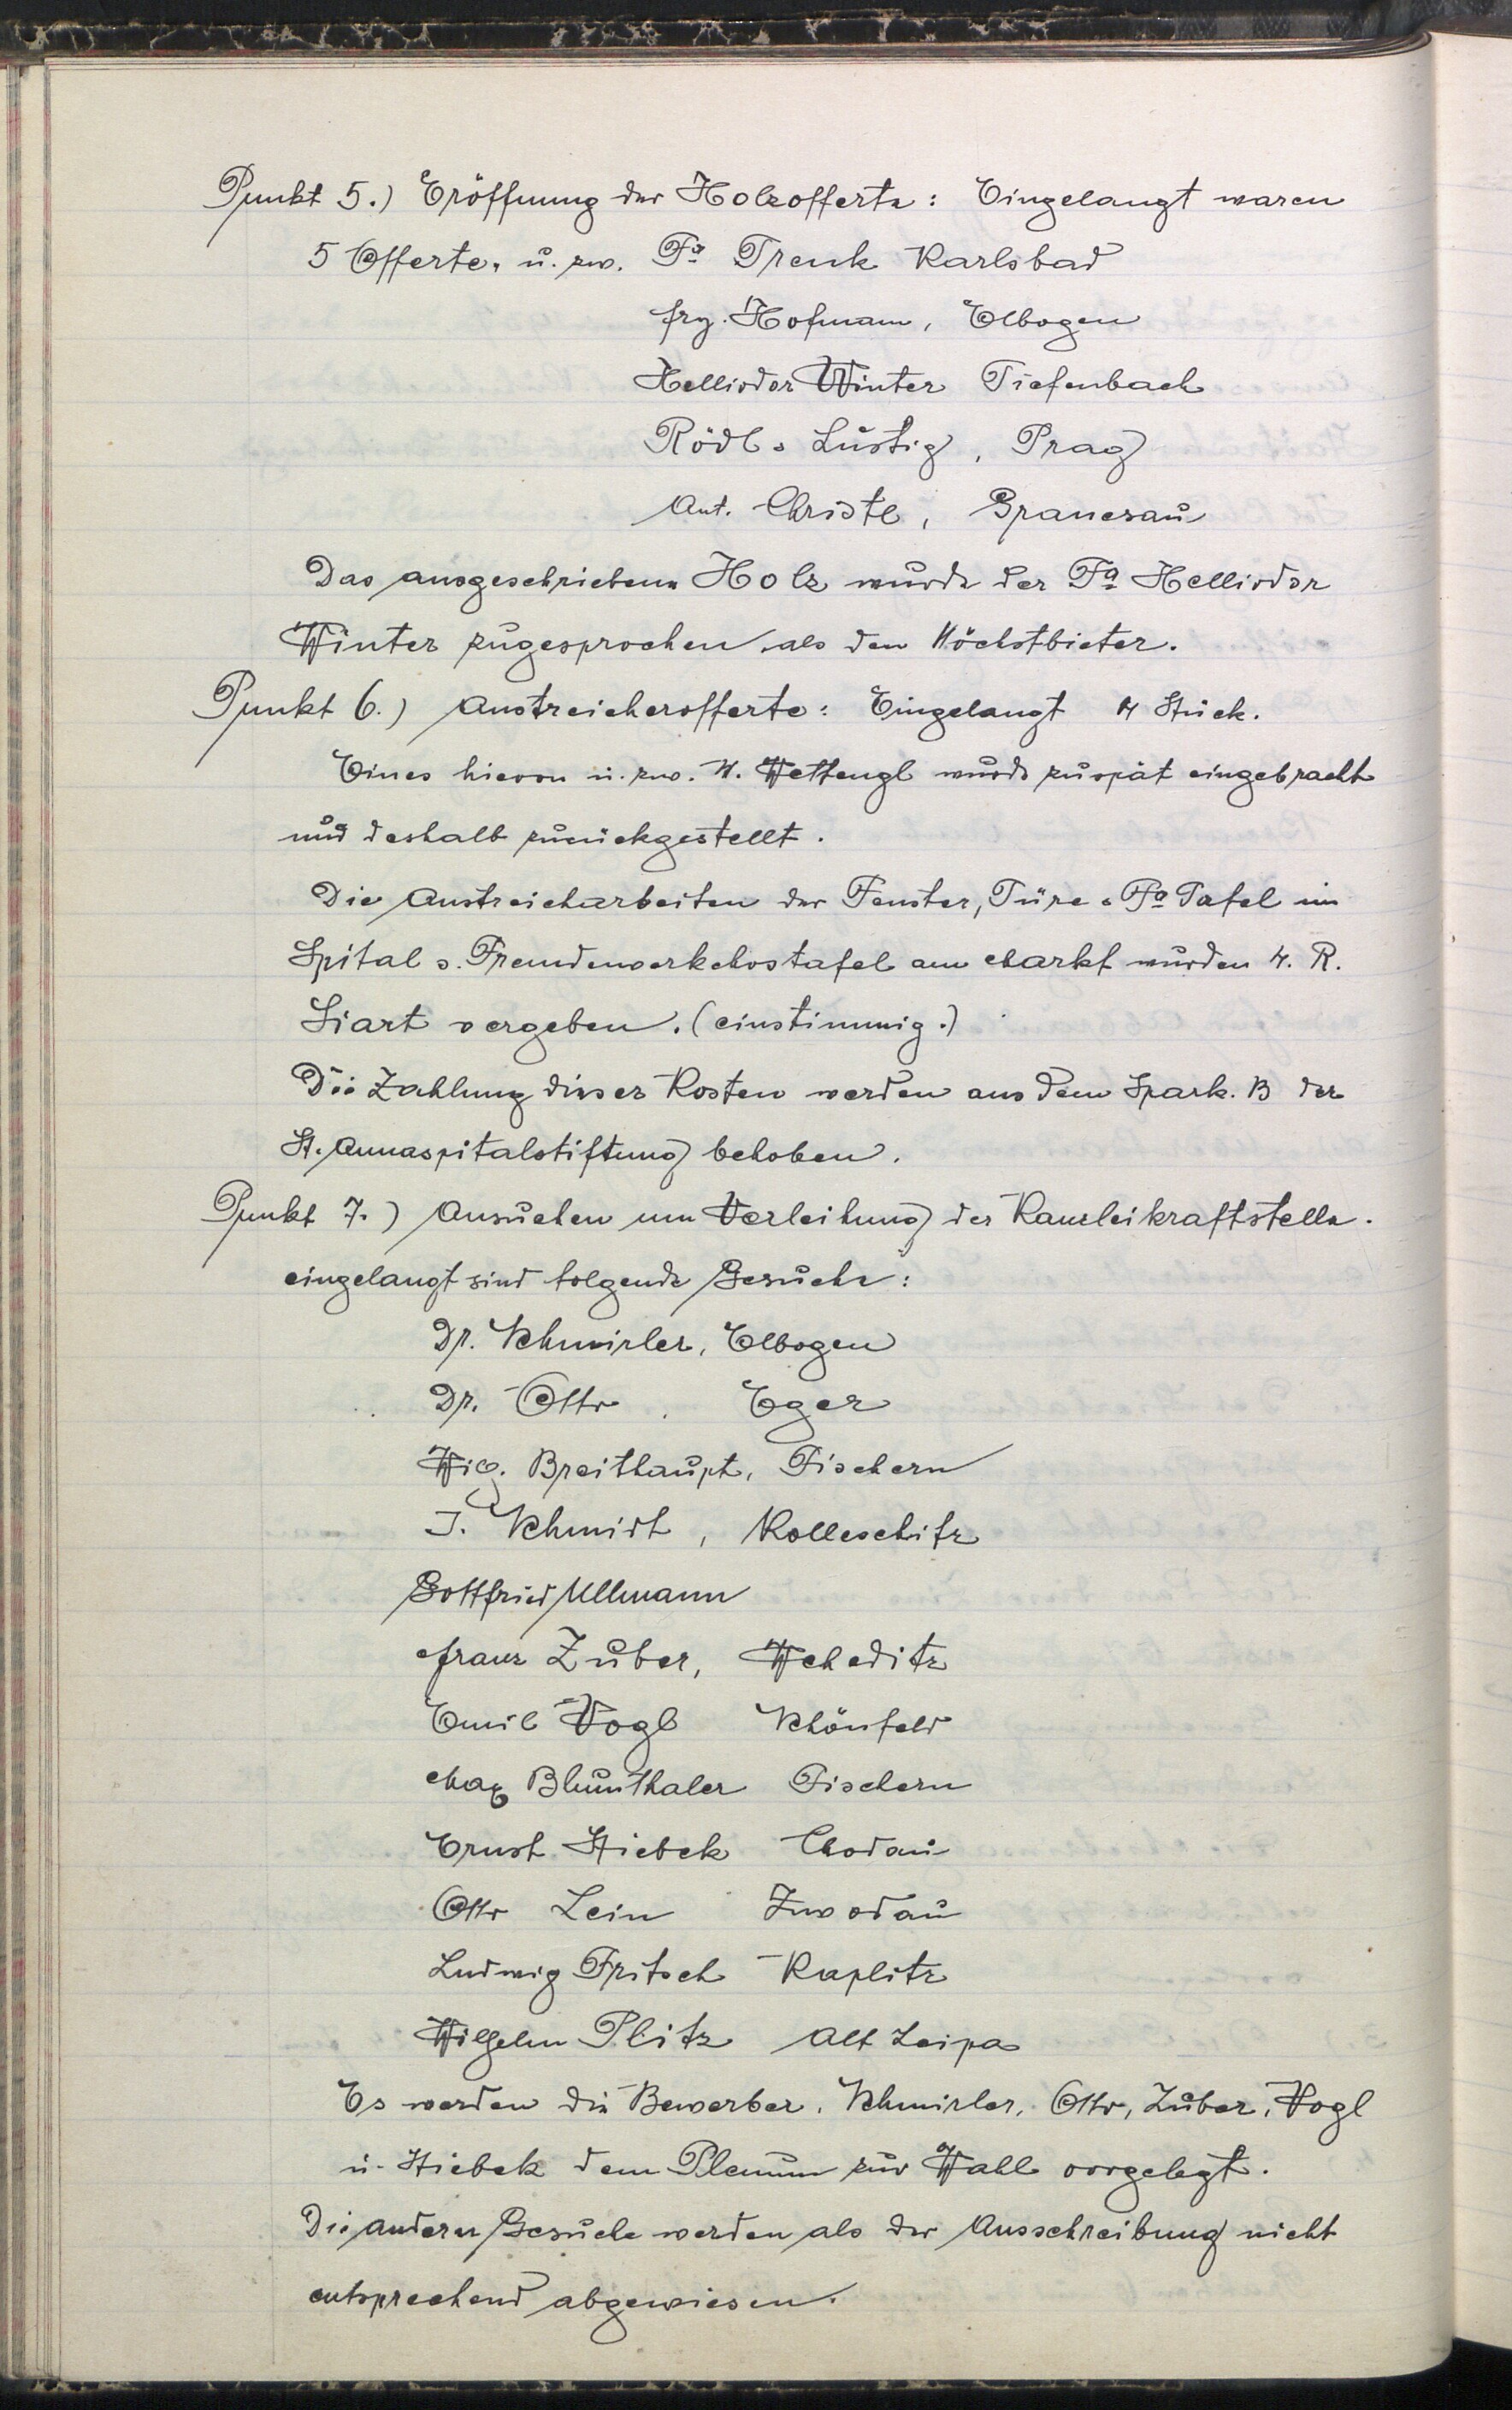 Punkt 5.) Eröffnung der Holzofferte: Eingelangt waren
5 Offerte, u. zw. Fa Trenk Karlsbad
Frz. Hofmann, Elbogen
Helliodor Winter Tiefenbach
Rödl & Lustig, Prag
Ant. Christl, Granesau
Das ausgeschriebene Holz wurde der Fa Helliodor
Winter zugesprochen als den Höchstbieter.
Punkt 6.) Anstreicherofferte: Eingelangt 4 Stück.
Eines hievon u. zw. H. Hettengl wurde zuspät eingebracht
und deshalb zurückgestellt.
Die Anstreicharbeiten der Fenster, Türe & Fa Tafel im
Spital & Fremdenverkehrstafel am Markt wurden H. R.
Siart vergeben. (einstimmig.)
Die Zahlung dieser Kosten werden aus dem Spark. B der
St. Annaspitalstiftung behoben.
Punkt 7.) Ansuchen um Verleihung der Kanzleikraftstelle.
eingelangt sind folgende Gesuche:
Dr. Schmirler, Elbogen
Dr. Otto, Eger
Breithaupt, Fischern
J. Schmidt, Kolleschitz
Gottfried Ullmann
Franz Zuber, Weheditz
Emil Vogl Schönfeld
Max Blumthaler Fischern
Ernst Stiebek Chodau
Otto Lein Zwodau
Ludwig Fritsch Kaplitz
Wilhelm Plitz Alt Leipa
Es werden die Bewerber, Schmirler, Otto, Zuber, Vogl
u. Stiebek dem Plenum zur Wahl vorgelegt.
Die anderen Gesuche werden als der Ausschreibung nicht
entsprechend abgewiesen.